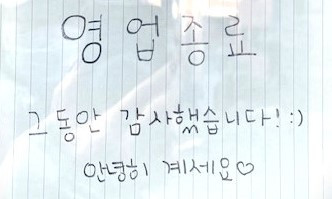 영업종료
그동안 감사했습니다! :)
안녕히 계세요♡